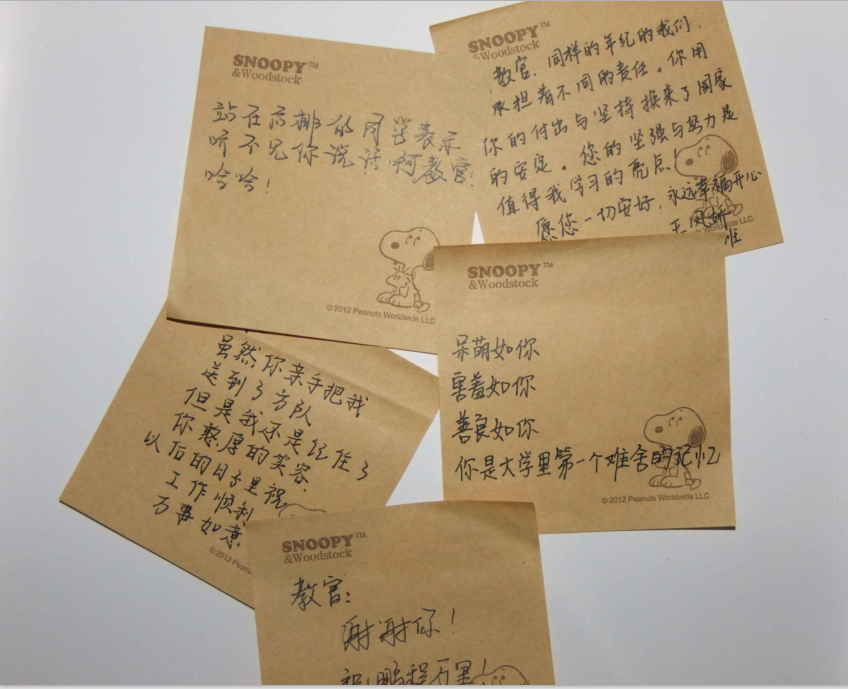 SNOOPY™
&Woodstock
站在后排的同学表示
听不见你说话啊教官!
哈哈!
© 2012 Peanuts Worldwide LLC
SNOOPY™
&Woodstock
教官,同样的年纪的我们,
承担着不同的责任。你用
你的付出与坚持换来了国家
的安定。您的坚强与努力是
值得我学习的亮点!
愿您一切安好,永远幸福开心
王凤娇
SNOOPY™
&Woodstock
呆萌如你
害羞如你
善良如你
你是大学里第一个难舍的记忆
© 2012 Peanuts Worldwide LLC
虽然你亲手把我
送到了方队
但是我还是记住了
你憨厚的笑容.
以后的日子里祝
工作顺利
万事如意
© 2012 Peanuts
SNOOPY™
&Woodstock
教官:
谢谢你!
祝鹏程万里!